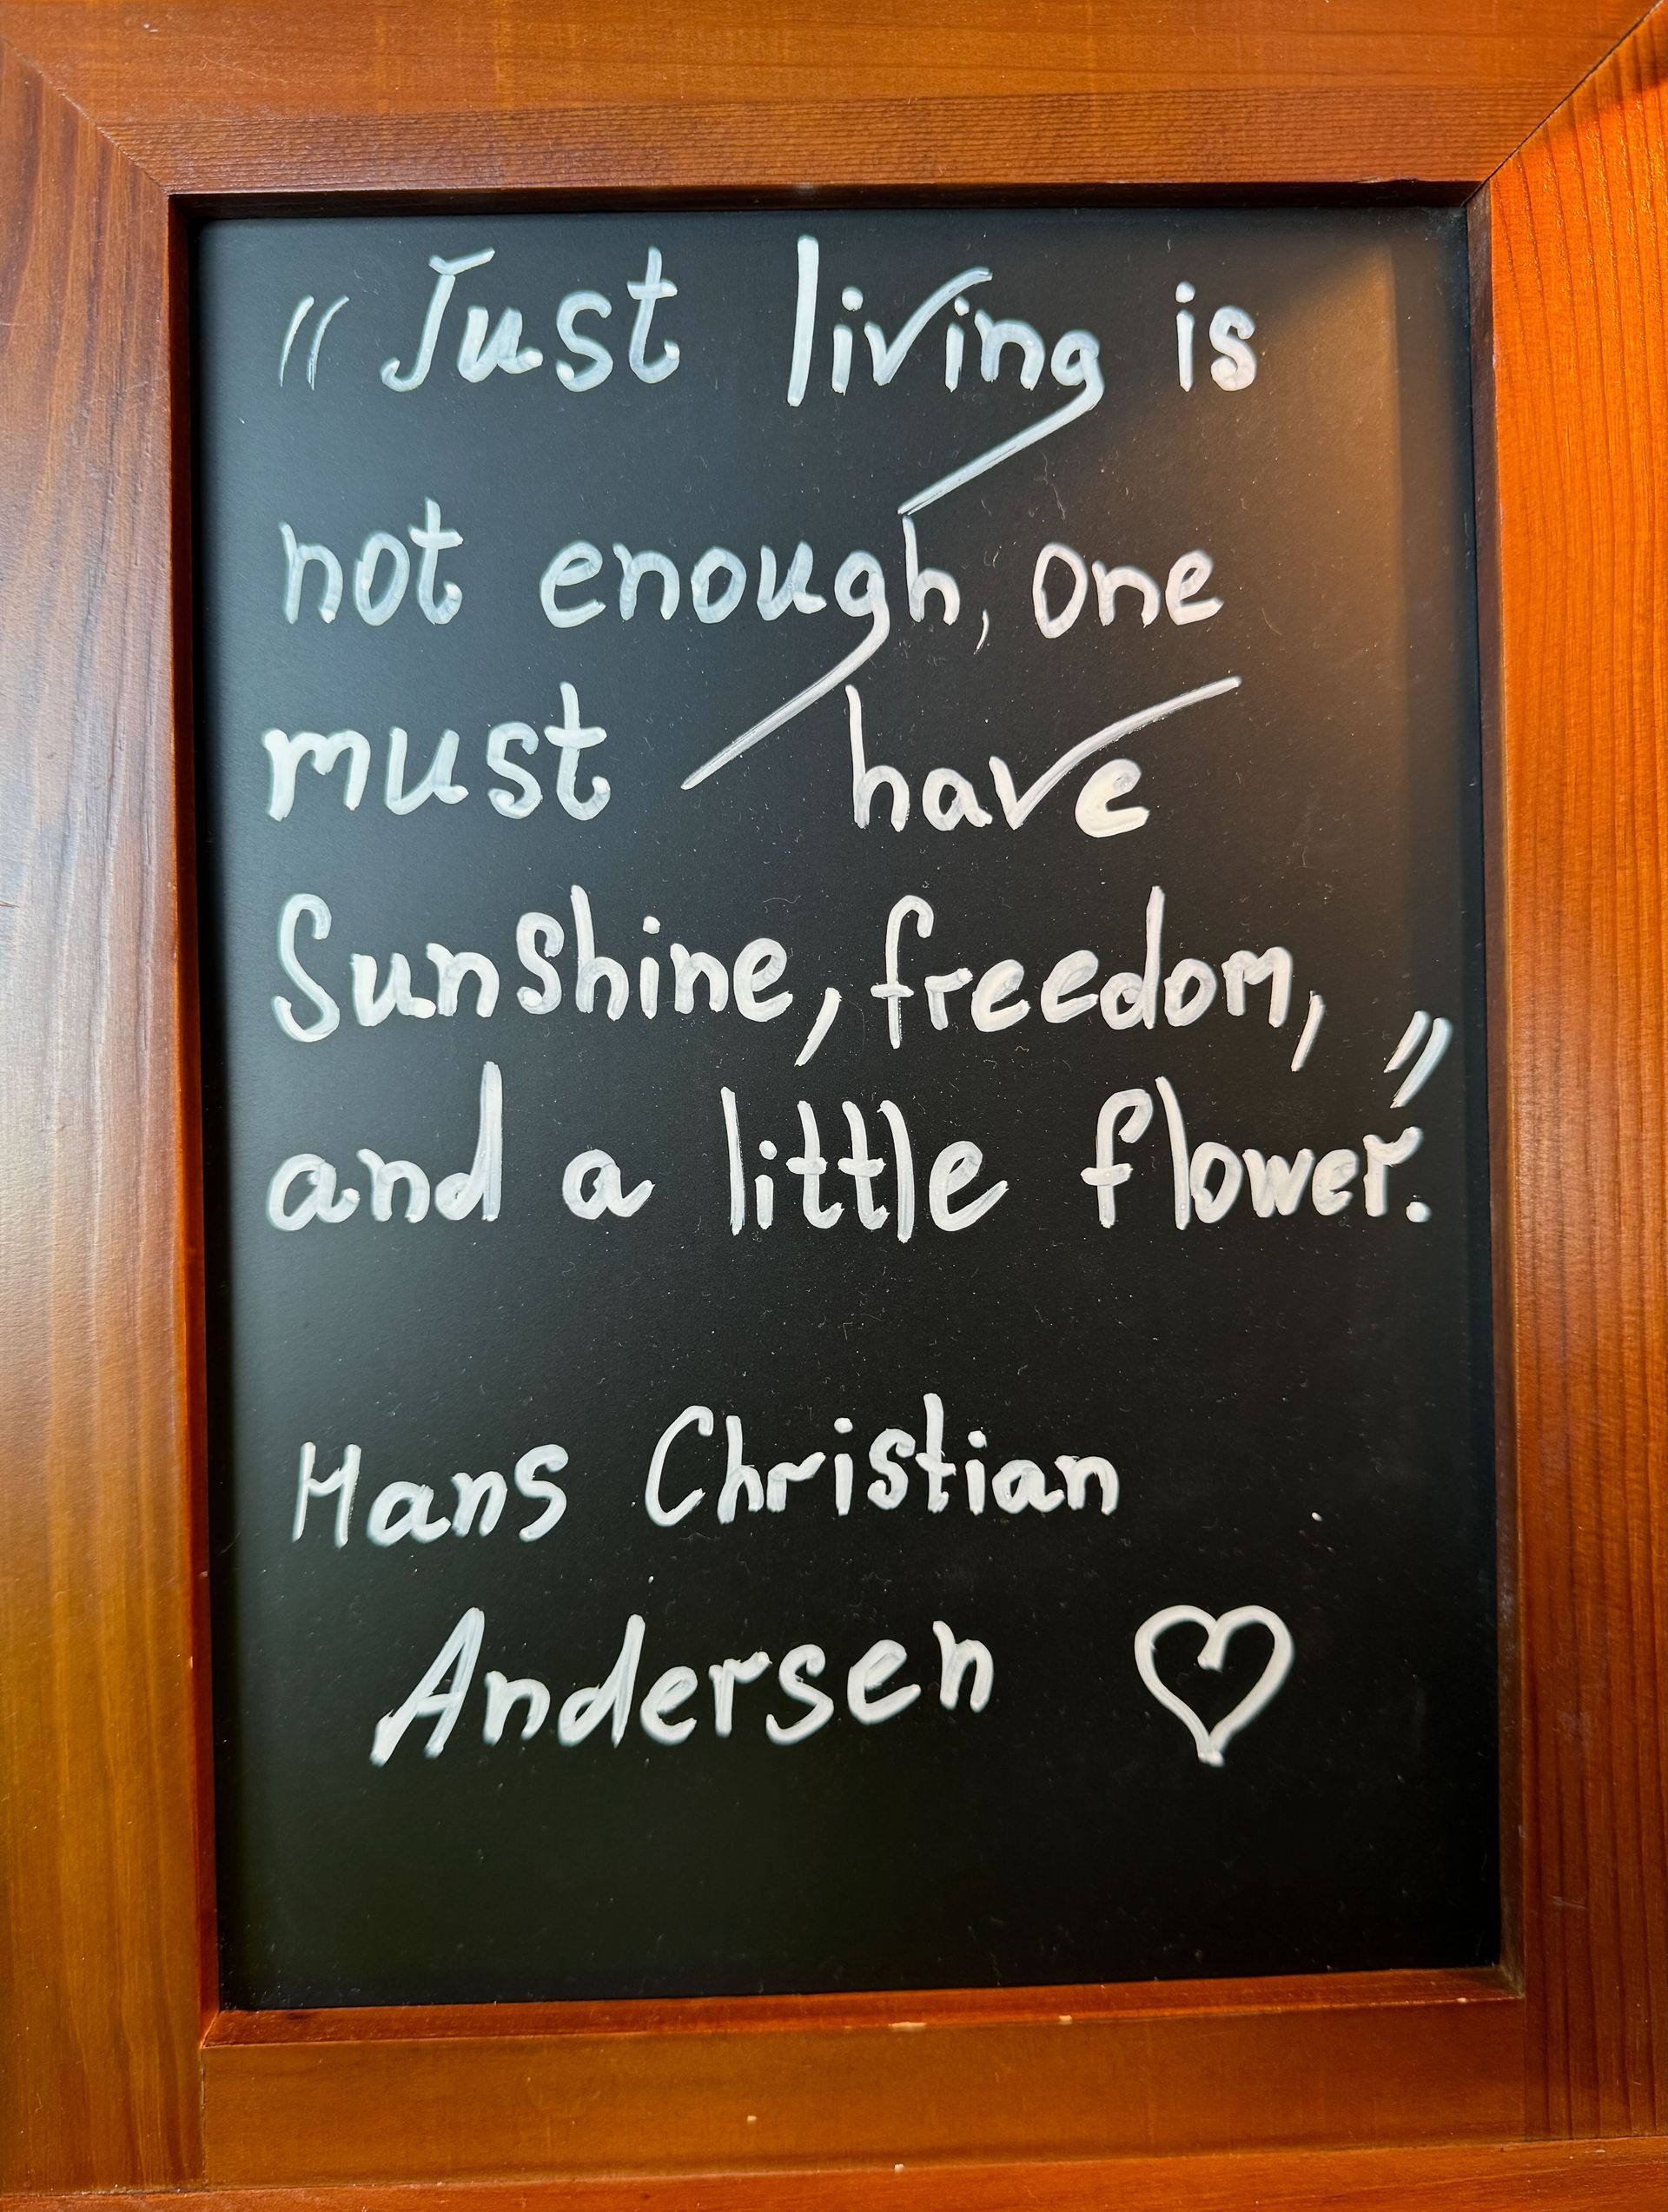 "Just living is
not enough, one
must have
Sunshine, freedom,
and a little flower."
Hans Christian
Andersen ♡